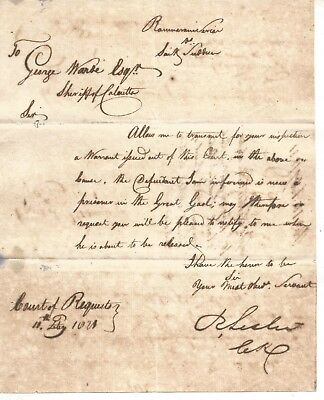 vs
To
George Warde Esqr.
Sheriff of Calcutta
Sir
Allow me to transmit for your inspection
a Warrant issued out of this Court, in the above
Cause, the Defendant I am informed is now a
prisoner in the Great Gaol; may I therefore
request you will be pleased to notify to me when
he is about to be released.
I have the honor to be
Sir
Your Most Obdt. Servant
Court of Requests
11th Feby